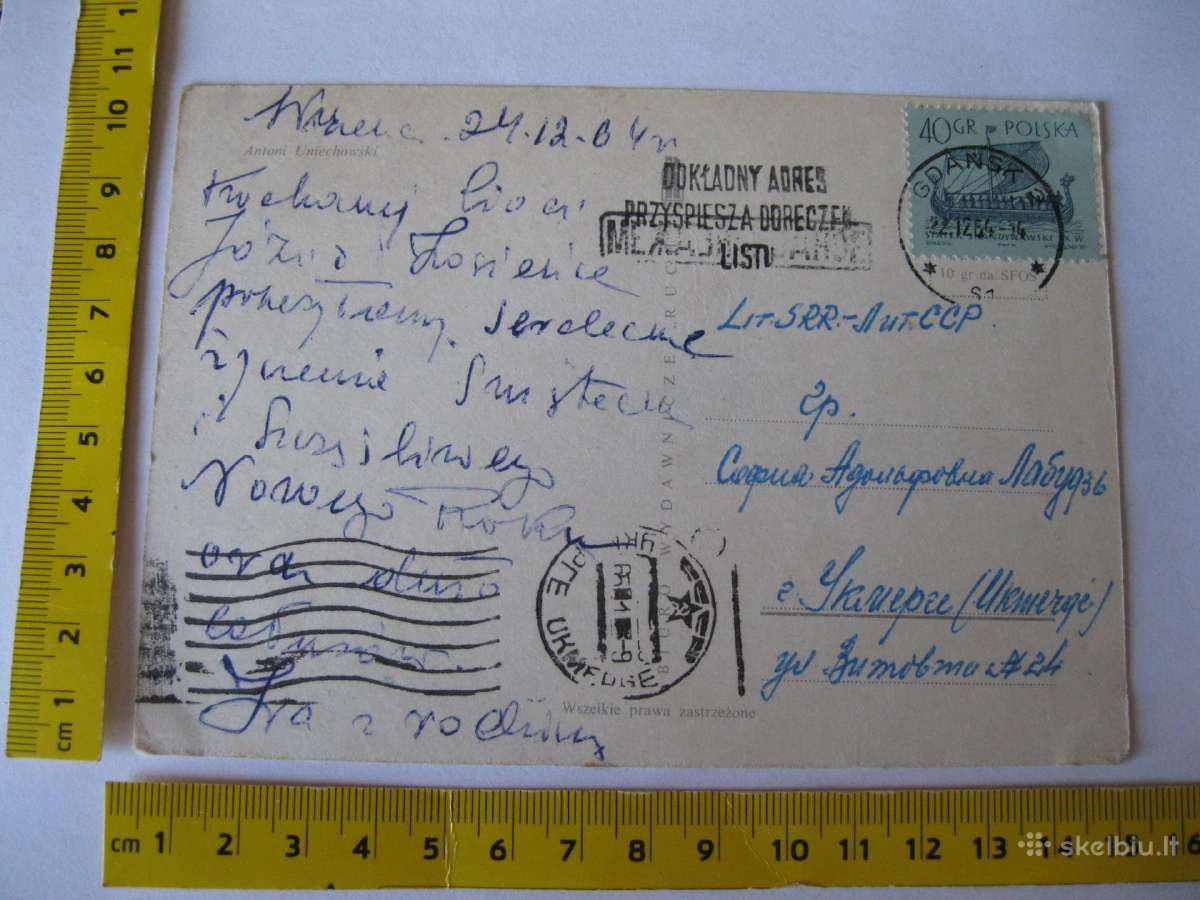 24.12.64 r
Antoni Uniechowski
Kochanej Cioci
Józi
przesyłamy serdeczne
życzenia
i Szczęśliwego
Nowego Roku
oraz dużo
całusów.
Ira z rodziną
40 GR POLSKA
GDAŃSK
22.12.64-14
DOKŁADNY ADRES
PRZYSPIESZA DORĘCZEN.
LISTU
10 gr na SFOS
Lit.SRR.-Лит.ССР.
гр.
София Адольфовна Лабудзь
г. Укмерге (Ukmergė)
ул. Витовта №24
UKMERGE
Wszelkie prawa zastrzeżone
cm 1 2 3 4 5 6 7 8 9 10 11
cm 1 2 3 4 5 6 7 8 9 10 11 12 13 14 15 16
skelbiu.lt